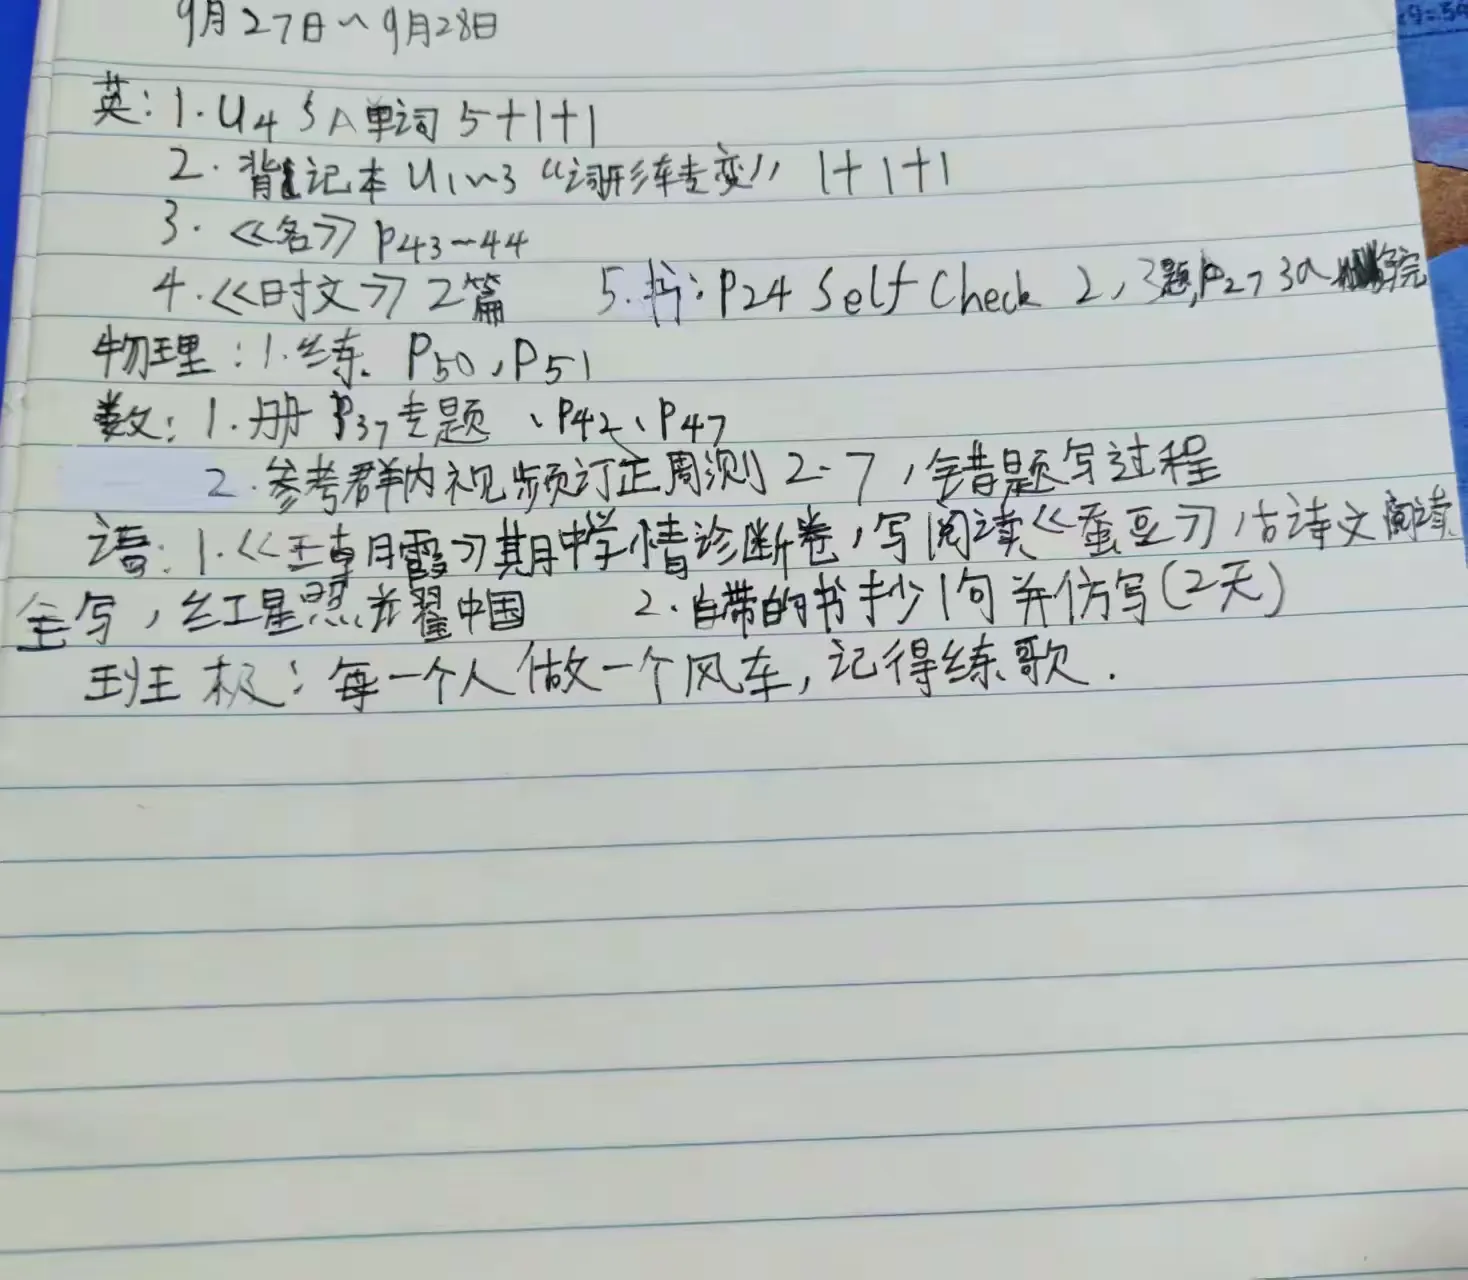 9月27日~9月28日
英:1. U4 SA单词 5+1+1
2. 背记本 U1~3 “词形转变” 1+1+1
3. 《名》P43~44
4. 《时文》2篇 5. 书:P24 Self Check 2, 3题, P27 3a 写完
物理:1. 练. P50, P51
数:1. 册 P37专题、P42、P47
2. 参考群内视频订正周测2-7, 错题写过程
语:1. 《王朝霞》期中学情诊断卷, 写阅读《蚕豆》, 古诗文阅读
全写, 红星照耀中国 2. 自带的书抄1句并仿写(2天)
班 极:每一个人做一个风车, 记得练歌.